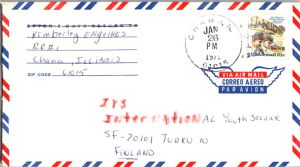 AFTER 5 DAYS RETURN TO
Kimberley Engelkes
RR#1
Chana, ILLINOIS
ZIP CODE 61015
CHANA, IL
JAN
26
PM
61015
VIA AIR MAIL
CORREO AEREO
PAR AVION
JYS
International Youth Service
SF-20101 TURKU 10
FINLAND